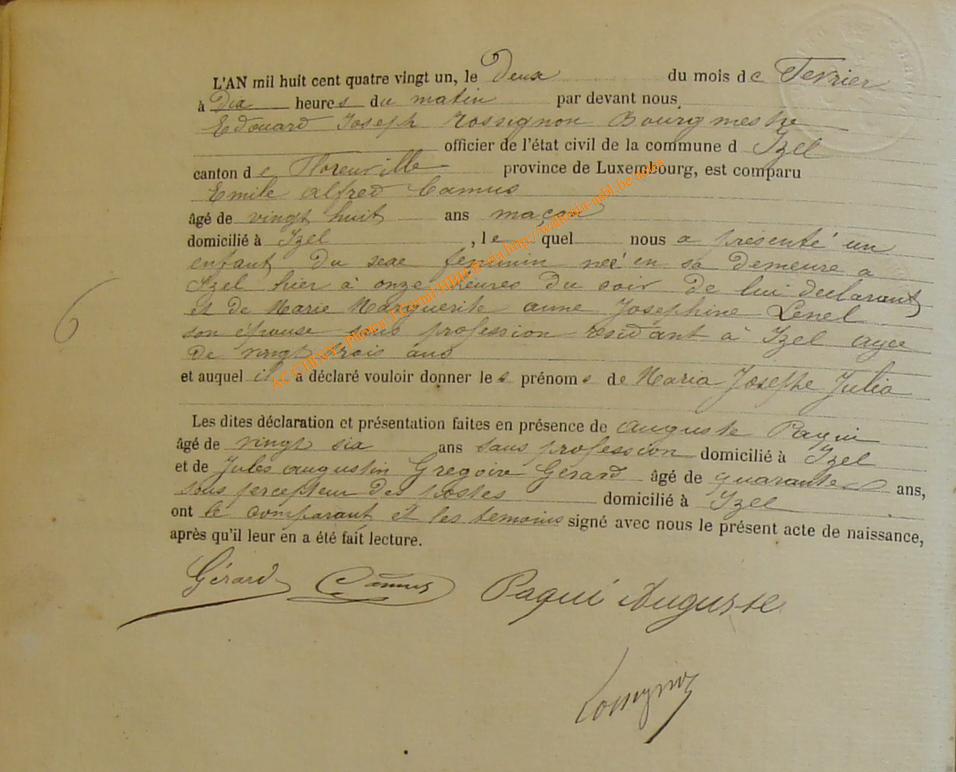 L'AN mil huit cent quatre vingt un, le Deux du mois de Fevrier
à Dix heures du matin par devant nous
Edouard Joseph Rossignon Bourgmestre
officier de l'état civil de la commune d Izel
canton de Florenville province de Luxembourg, est comparu
Emile alfred Camus
âgé de vingt huit ans maçon
domicilié à Izel , le quel nous a présenté un
enfant du sexe féminin né en sa demeure a
Izel hier à onze heures du soir de lui declarant
et de Marie Marguerite anne Josephine Lenel
son épouse sans profession residant à Izel agée
de vingt trois ans
6
et auquel il a déclaré vouloir donner les prénoms de Maria Josephe Julia
Les dites déclaration et présentation faites en présence de auguste Paqui
âgé de vingt six ans sans profession domicilié à Izel
et de Jules augustin Gregoire Gérard âgé de quarante ans,
sous percepteur des postes domicilié à Izel
ont le comparant et les temoins signé avec nous le présent acte de naissance,
après qu'il leur en a été fait lecture.
Gérard Camus Paqui Auguste
Rossignon